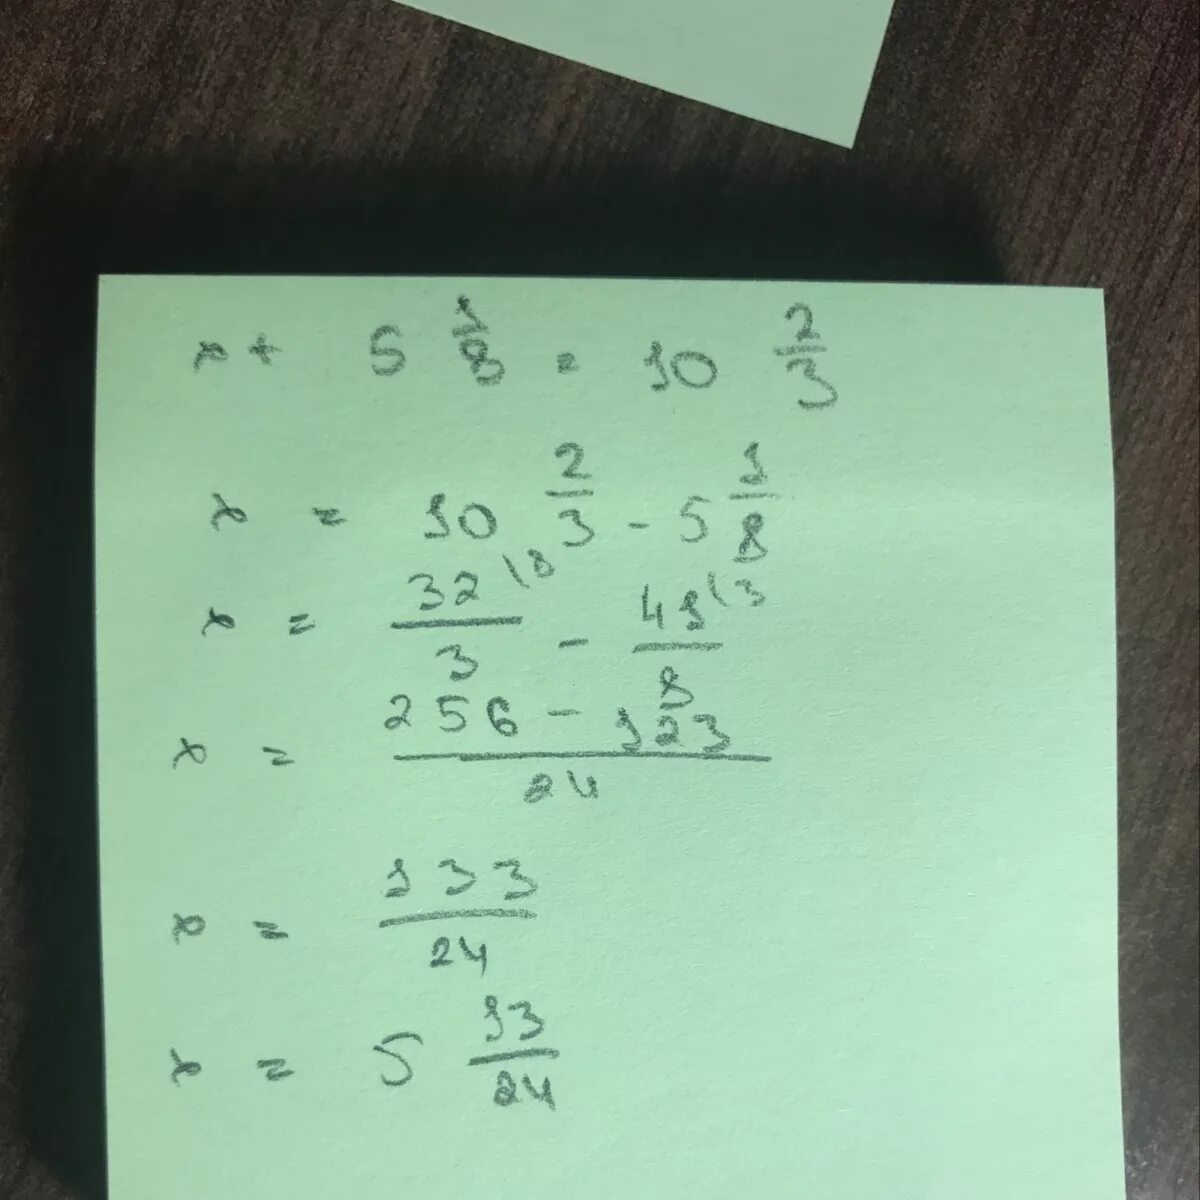 x + 5 1/8 = 10 2/3
x = 10 2/3 - 5 1/8
x = 32\8/3 - 41\3/8
x = 256 - 123/24
x = 133/24
x = 5 13/24